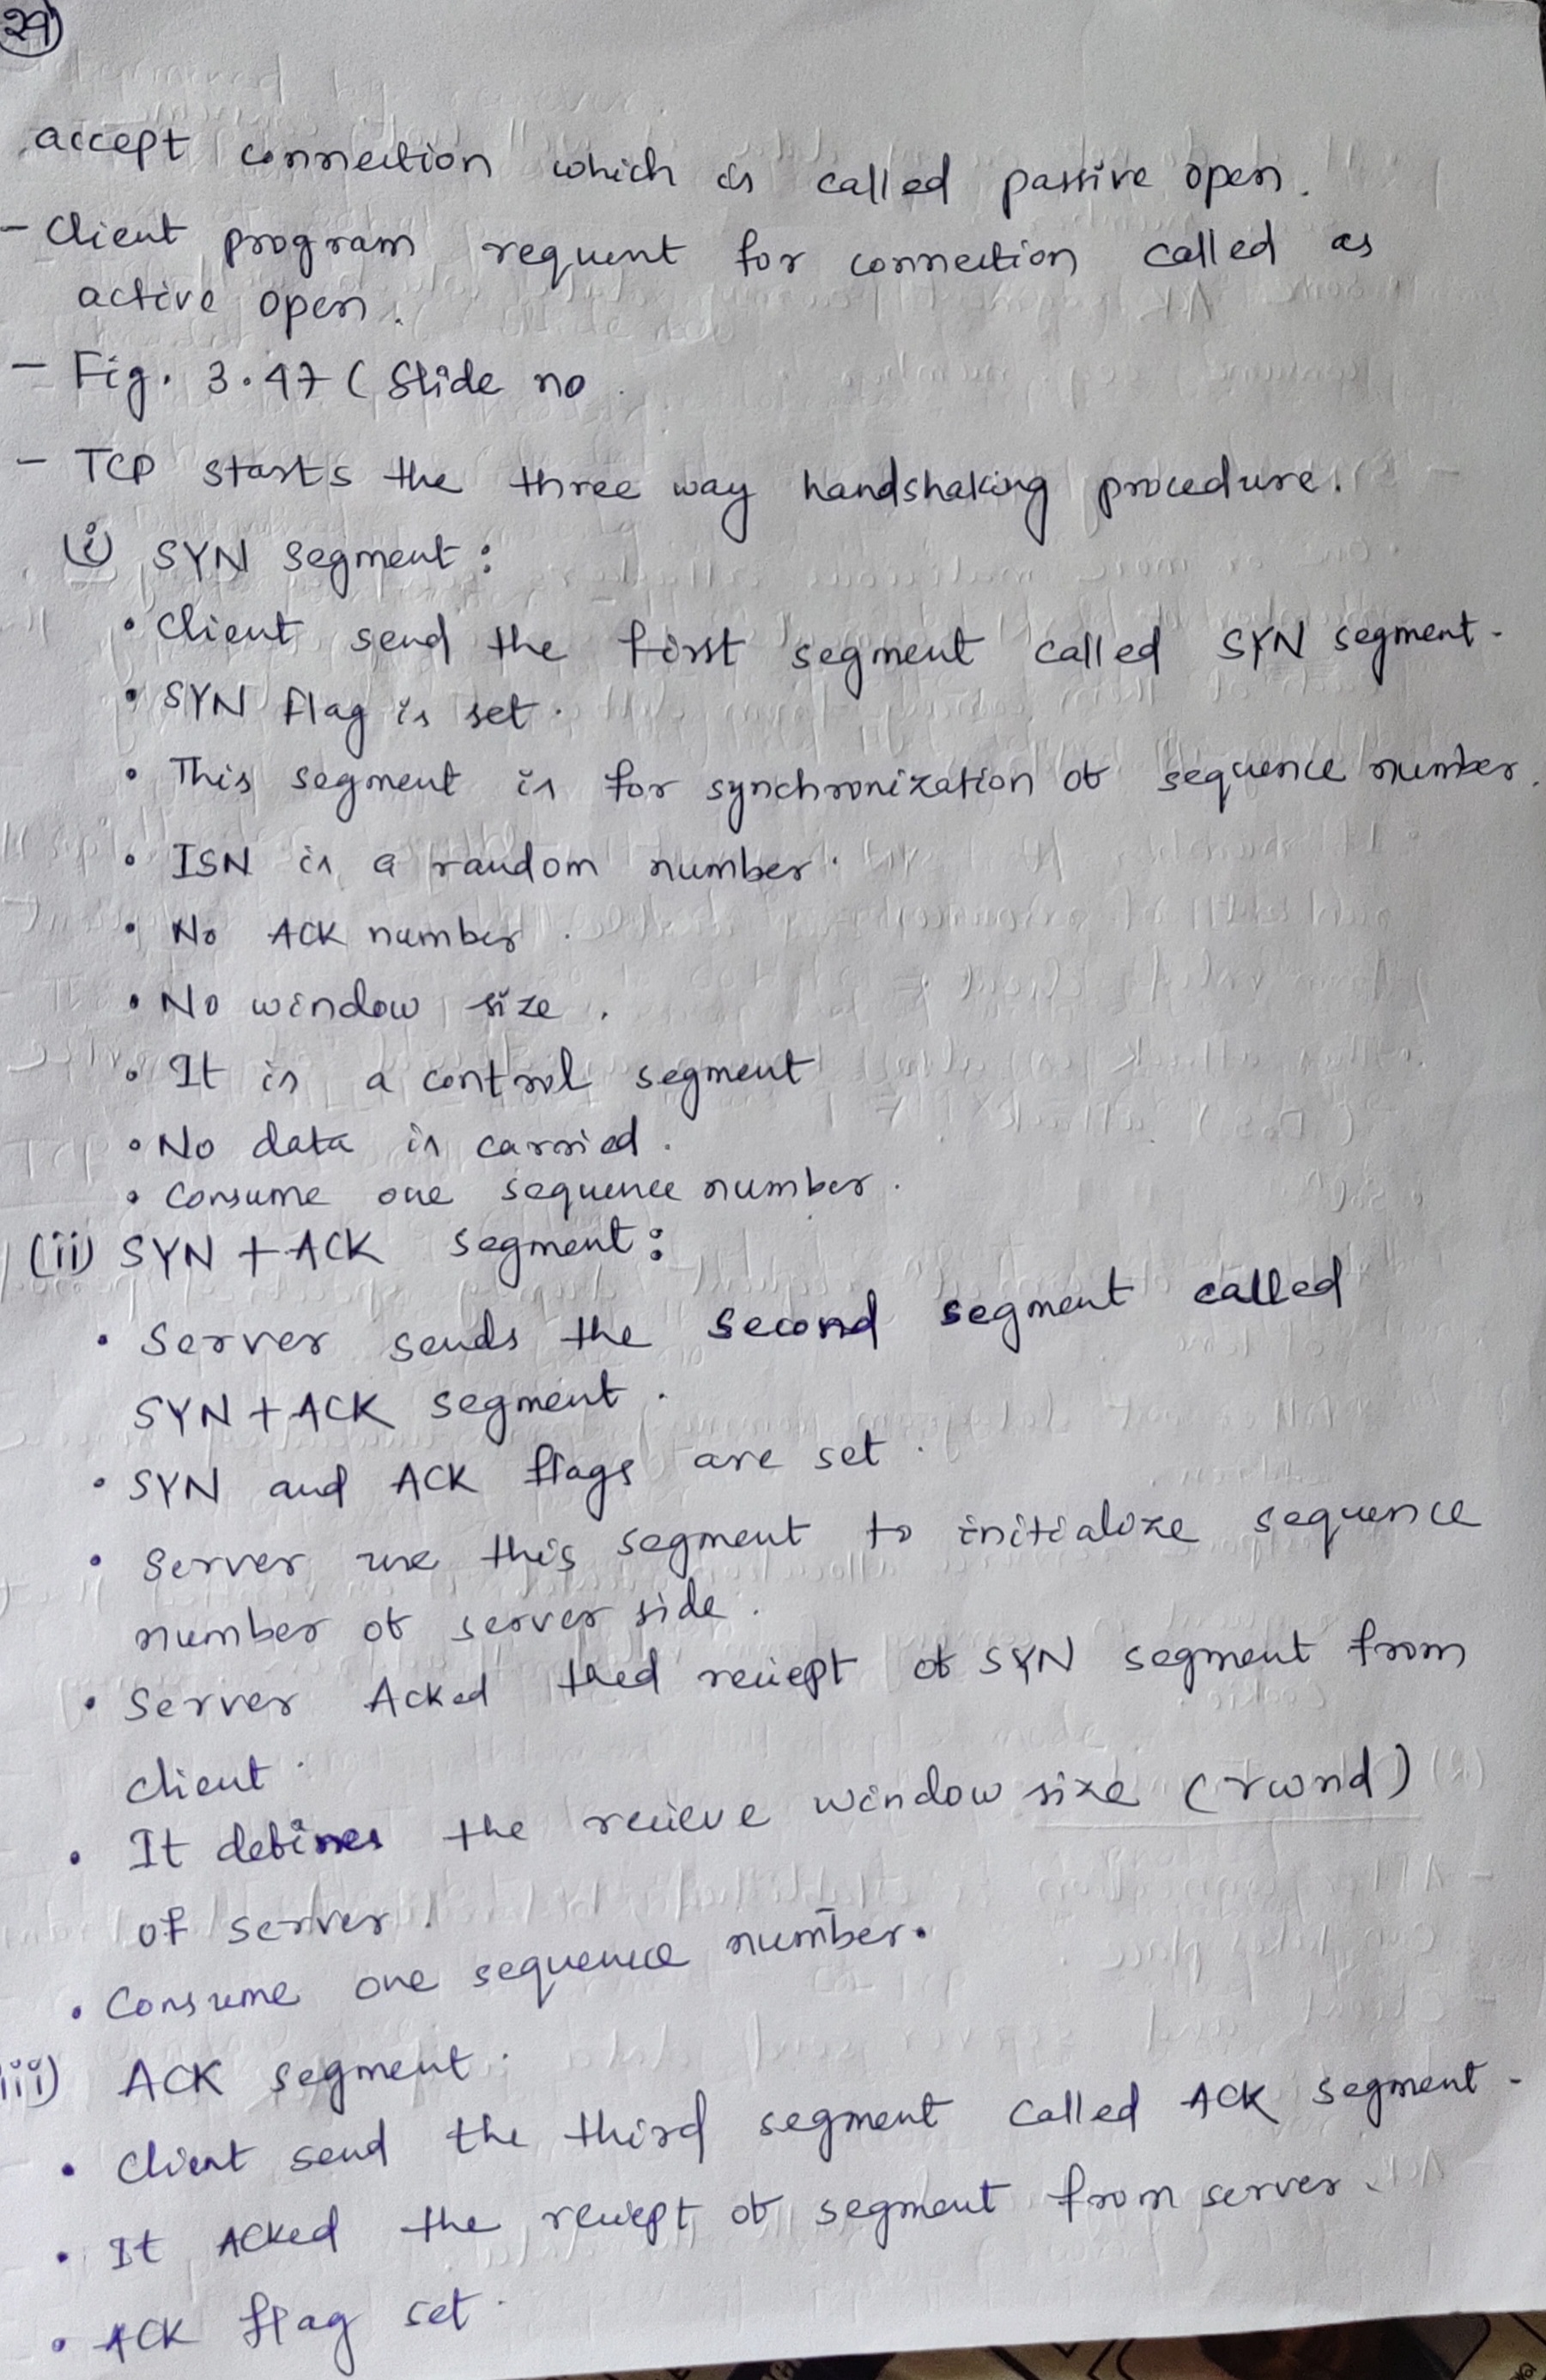 29
accept connection which is called passive open.
- Client program request for connection called as
active open.
- Fig. 3.47 ( Slide no.
- TCP starts the three way handshaking procedure.
(i) SYN segment:
• Client send the first segment called SYN segment.
• SYN flag is set.
• This segment is for synchronization of sequence number.
• ISN is a random number.
• No ACK number.
• No window size.
• It is a control segment
• No data is carried.
• Consume one sequence number.
(ii) SYN + ACK segment:
• Server sends the second segment called
SYN + ACK segment.
• SYN and ACK flags are set.
• Server use this segment to initialize sequence
number of server side.
• Server Acked thed reciept of SYN segment from
client.
• It defines the recieve window size (rwnd)
of server.
• Consume one sequence number.
iii) ACK segment:
• Client send the third segment called ACK segment.
• It Acked the reciept of segment from server.
• ACK flag set.